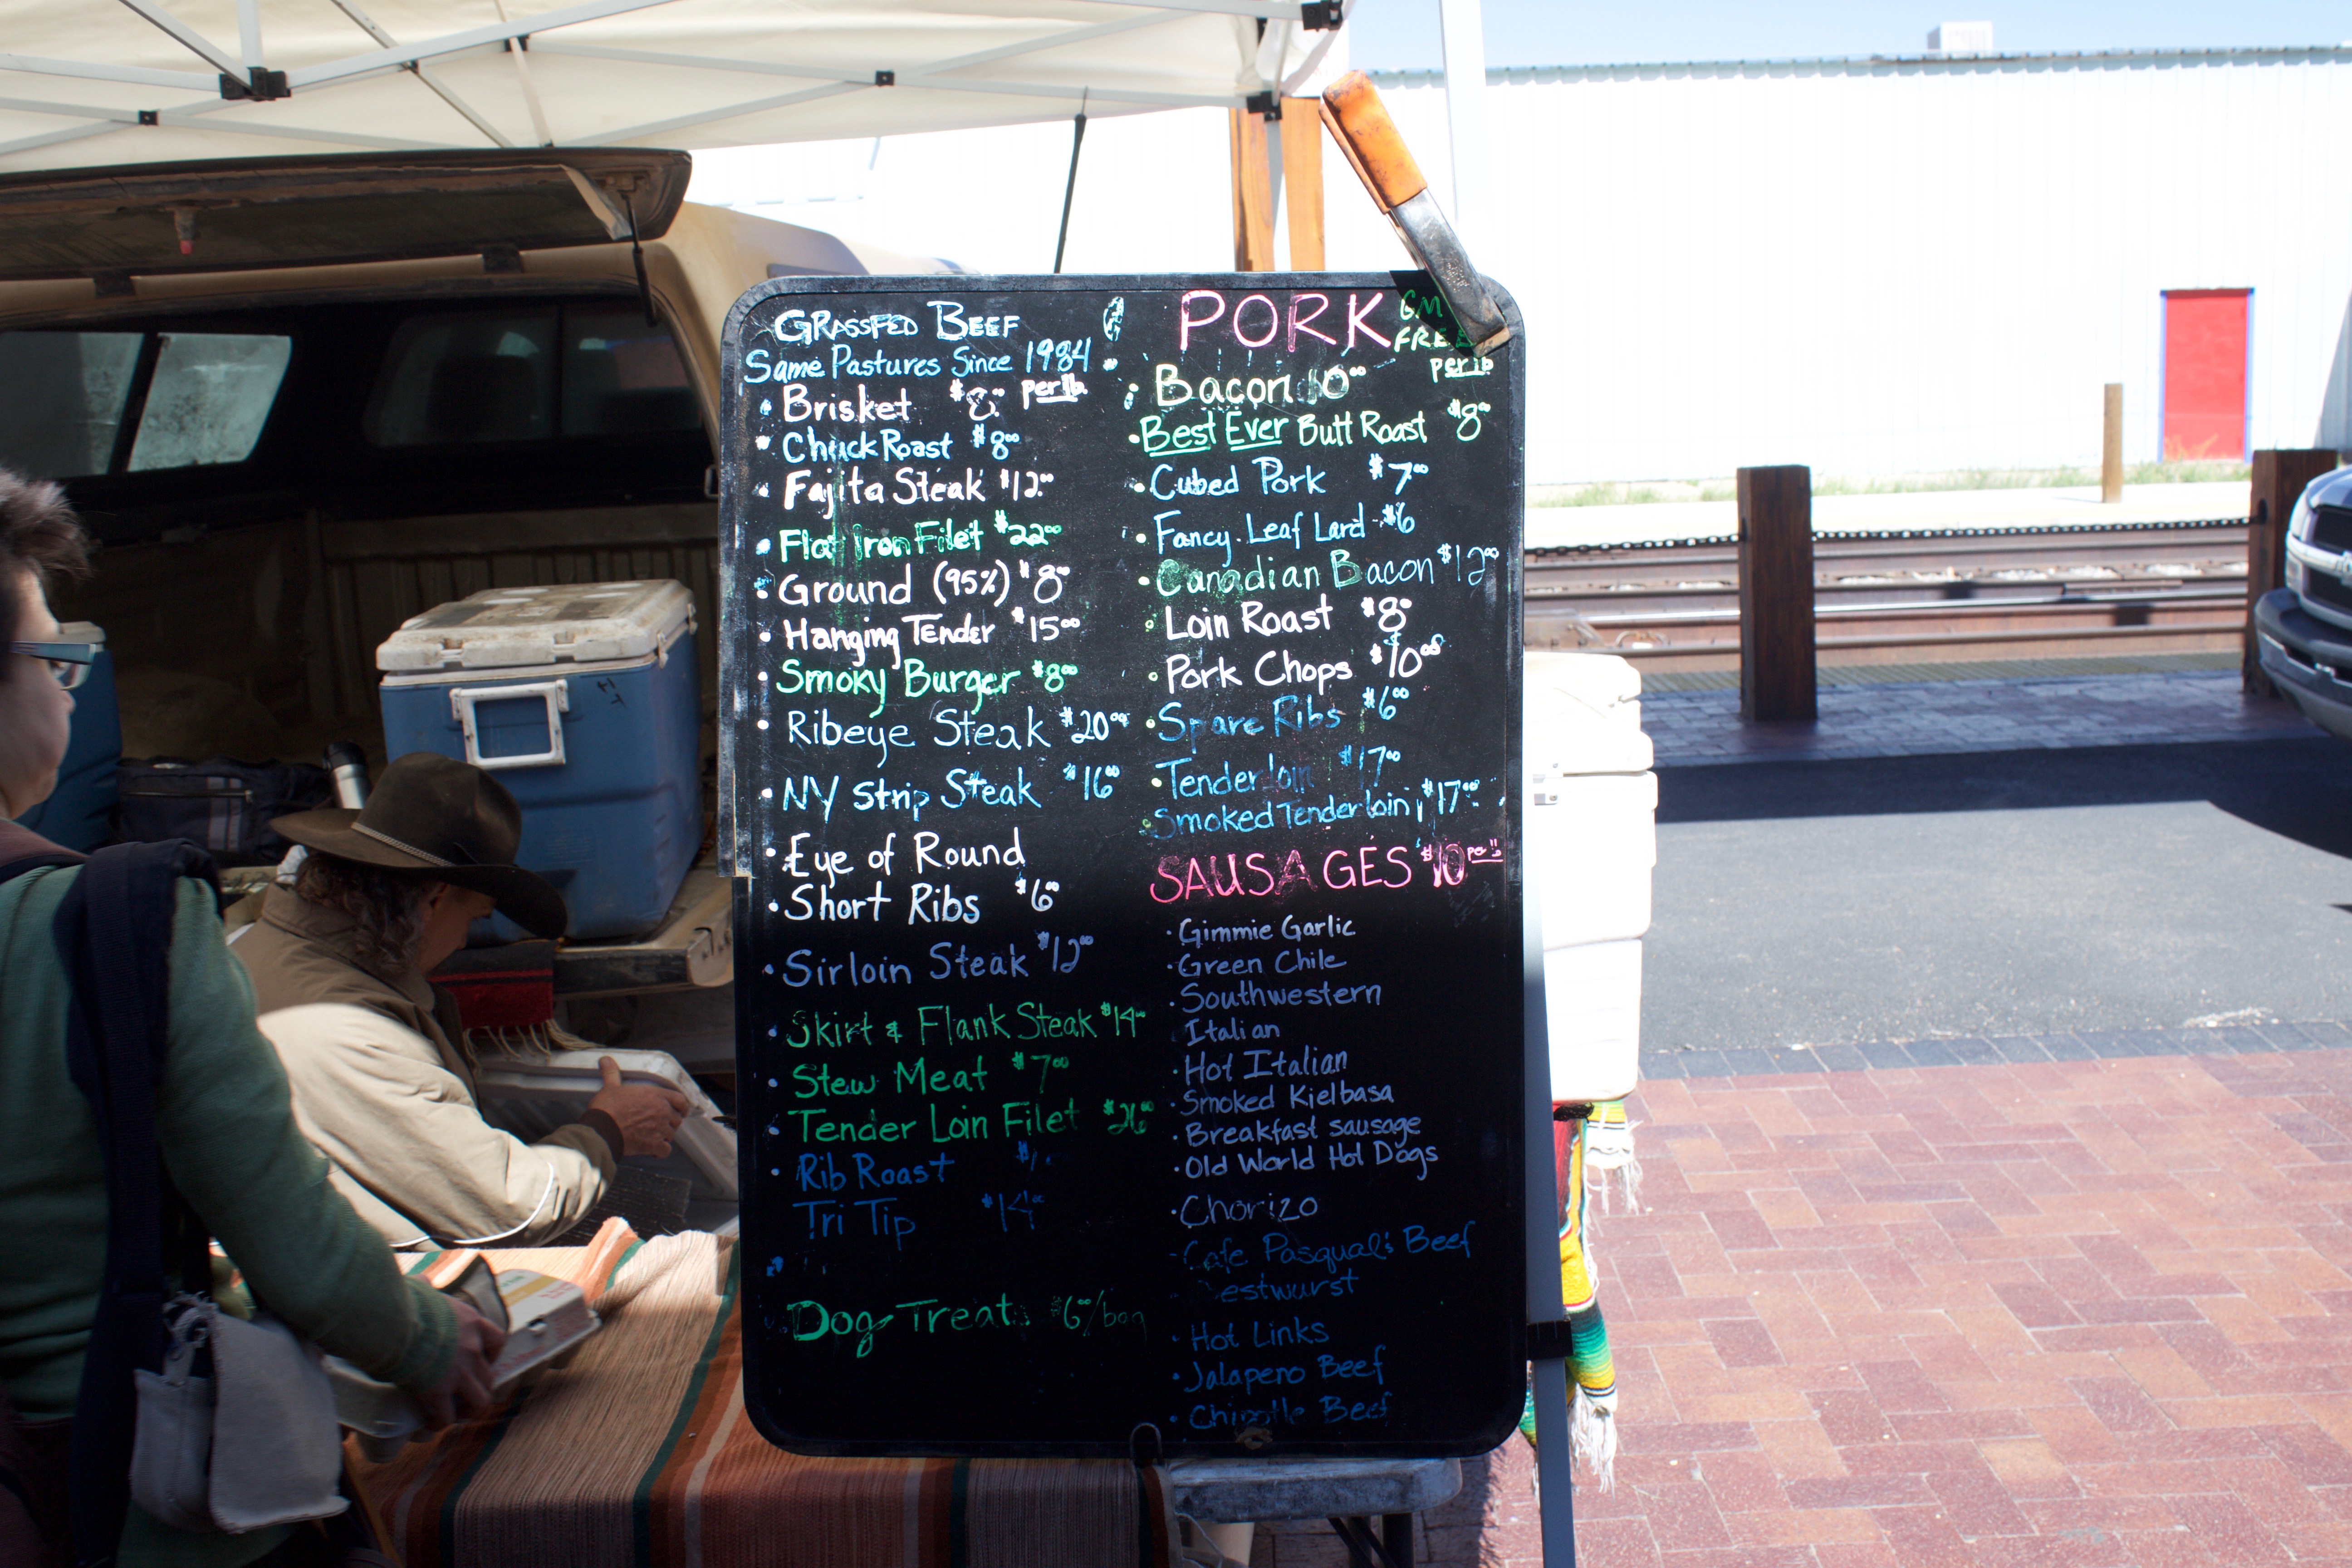 GRASSFED BEEF
Same Pastures Since 1984
• Brisket $8.00 per lb.
• Chuck Roast $8.00
• Fajita Steak $12.00
• Flat Iron Filet $22.00
• Ground (95%) $8.00
• Hanging Tender $15.00
• Smoky Burger $8.00
• Ribeye Steak $20.00
• NY Strip Steak $16.00
• Eye of Round
• Short Ribs $6.00
• Sirloin Steak $12.00
• Skirt & Flank Steak $14.00
• Stew Meat $7.00
• Tender Loin Filet $26.00
• Rib Roast
Tri Tip $14.00
Dog Treats $6.00/bag
PORK GM
FREE
per lb
• Bacon 10.00
• Best Ever Butt Roast $8.00
• Cubed Pork $7.00
• Fancy Leaf Lard - $6
• Canadian Bacon $12.00
• Loin Roast $8.00
• Pork Chops $10.00
• Spare Ribs $6.00
• Tenderloin $17.00
• Smoked Tenderloin $17.00
SAUSAGES $10 per lb
• Gimmie Garlic
• Green Chile
• Southwestern
• Italian
• Hot Italian
• Smoked Kielbasa
• Breakfast sausage
• Old World Hot Dogs
• Chorizo
- Cafe Pasqual's Beef
• Hot Links
• Jalapeno Beef
• Chipotle Beef